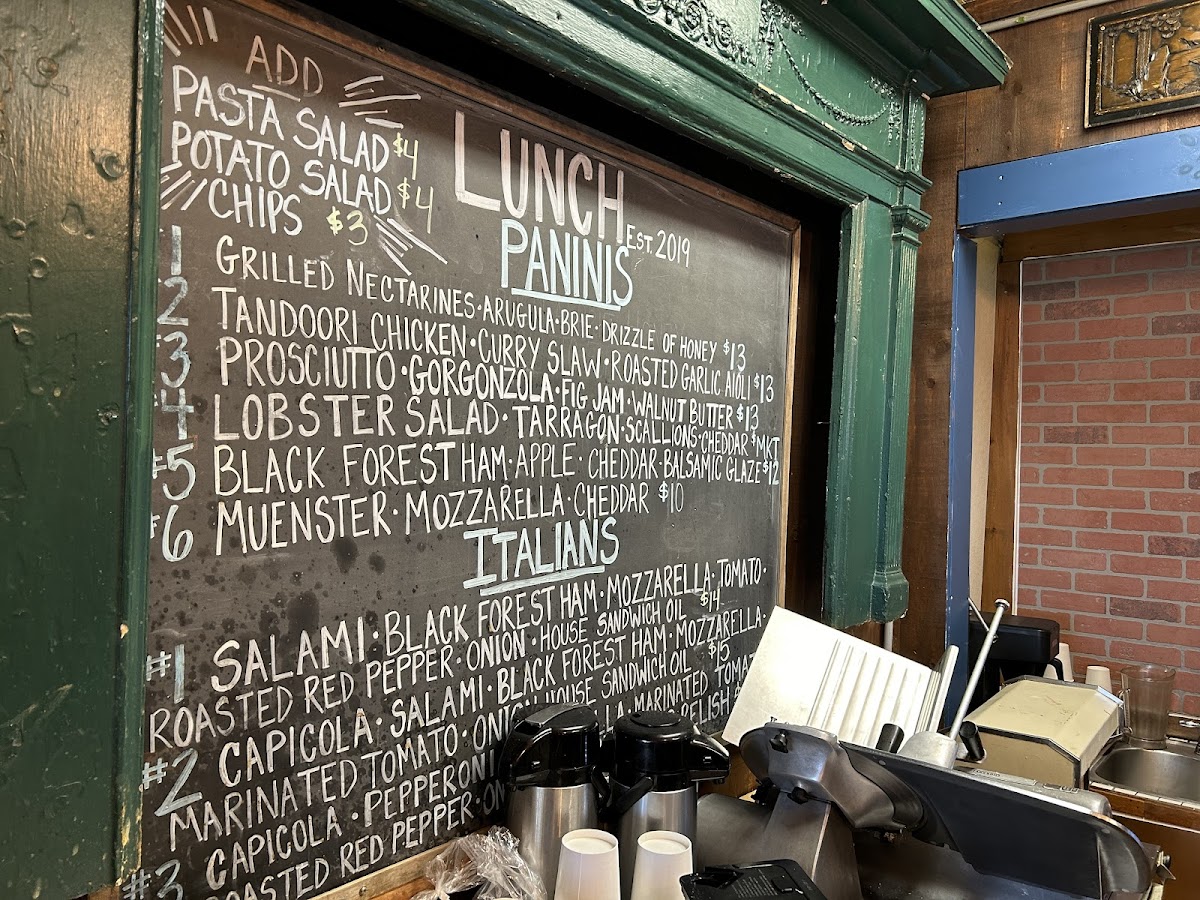 ADD
PASTA SALAD $4
POTATO SALAD $4
CHIPS $3
LUNCH
EST. 2019
PANINIS
1 GRILLED NECTARINES · ARUGULA · BRIE · DRIZZLE OF HONEY $13
2 TANDOORI CHICKEN · CURRY SLAW · ROASTED GARLIC AIOLI $13
3 PROSCIUTTO · GORGONZOLA · FIG JAM · WALNUT BUTTER $13
4 LOBSTER SALAD · TARRAGON · SCALLIONS · CHEDDAR $MKT
#5 BLACK FOREST HAM · APPLE · CHEDDAR · BALSAMIC GLAZE $12
#6 MUENSTER · MOZZARELLA · CHEDDAR $10
ITALIANS
#1 SALAMI · BLACK FOREST HAM · MOZZARELLA · TOMATO ·
ROASTED RED PEPPER · ONION · HOUSE SANDWICH OIL $14
#2 CAPICOLA · SALAMI · BLACK FOREST HAM · MOZZARELLA ·
MARINATED TOMATO · ONION HOUSE SANDWICH OIL $15
#3 CAPICOLA · PEPPERONI MARINATED TOMAT
ROASTED RED PEPPER · ON RELISH